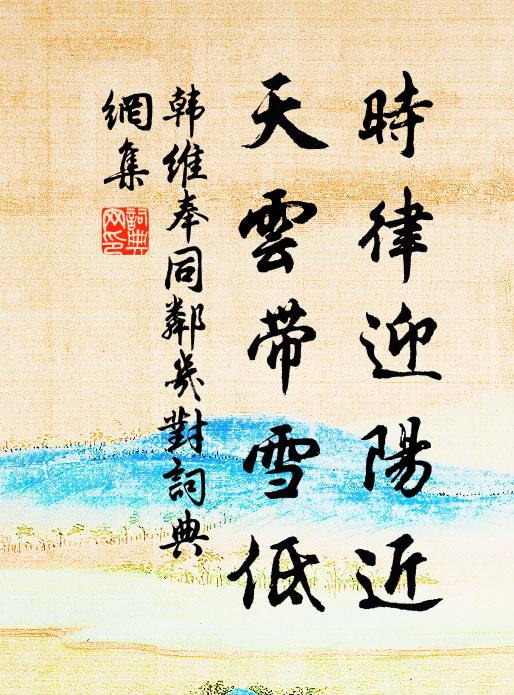 時律迎陽近
天雲帶雪低
韩維奉同鄰幾對詞典
網集
詞典
网印